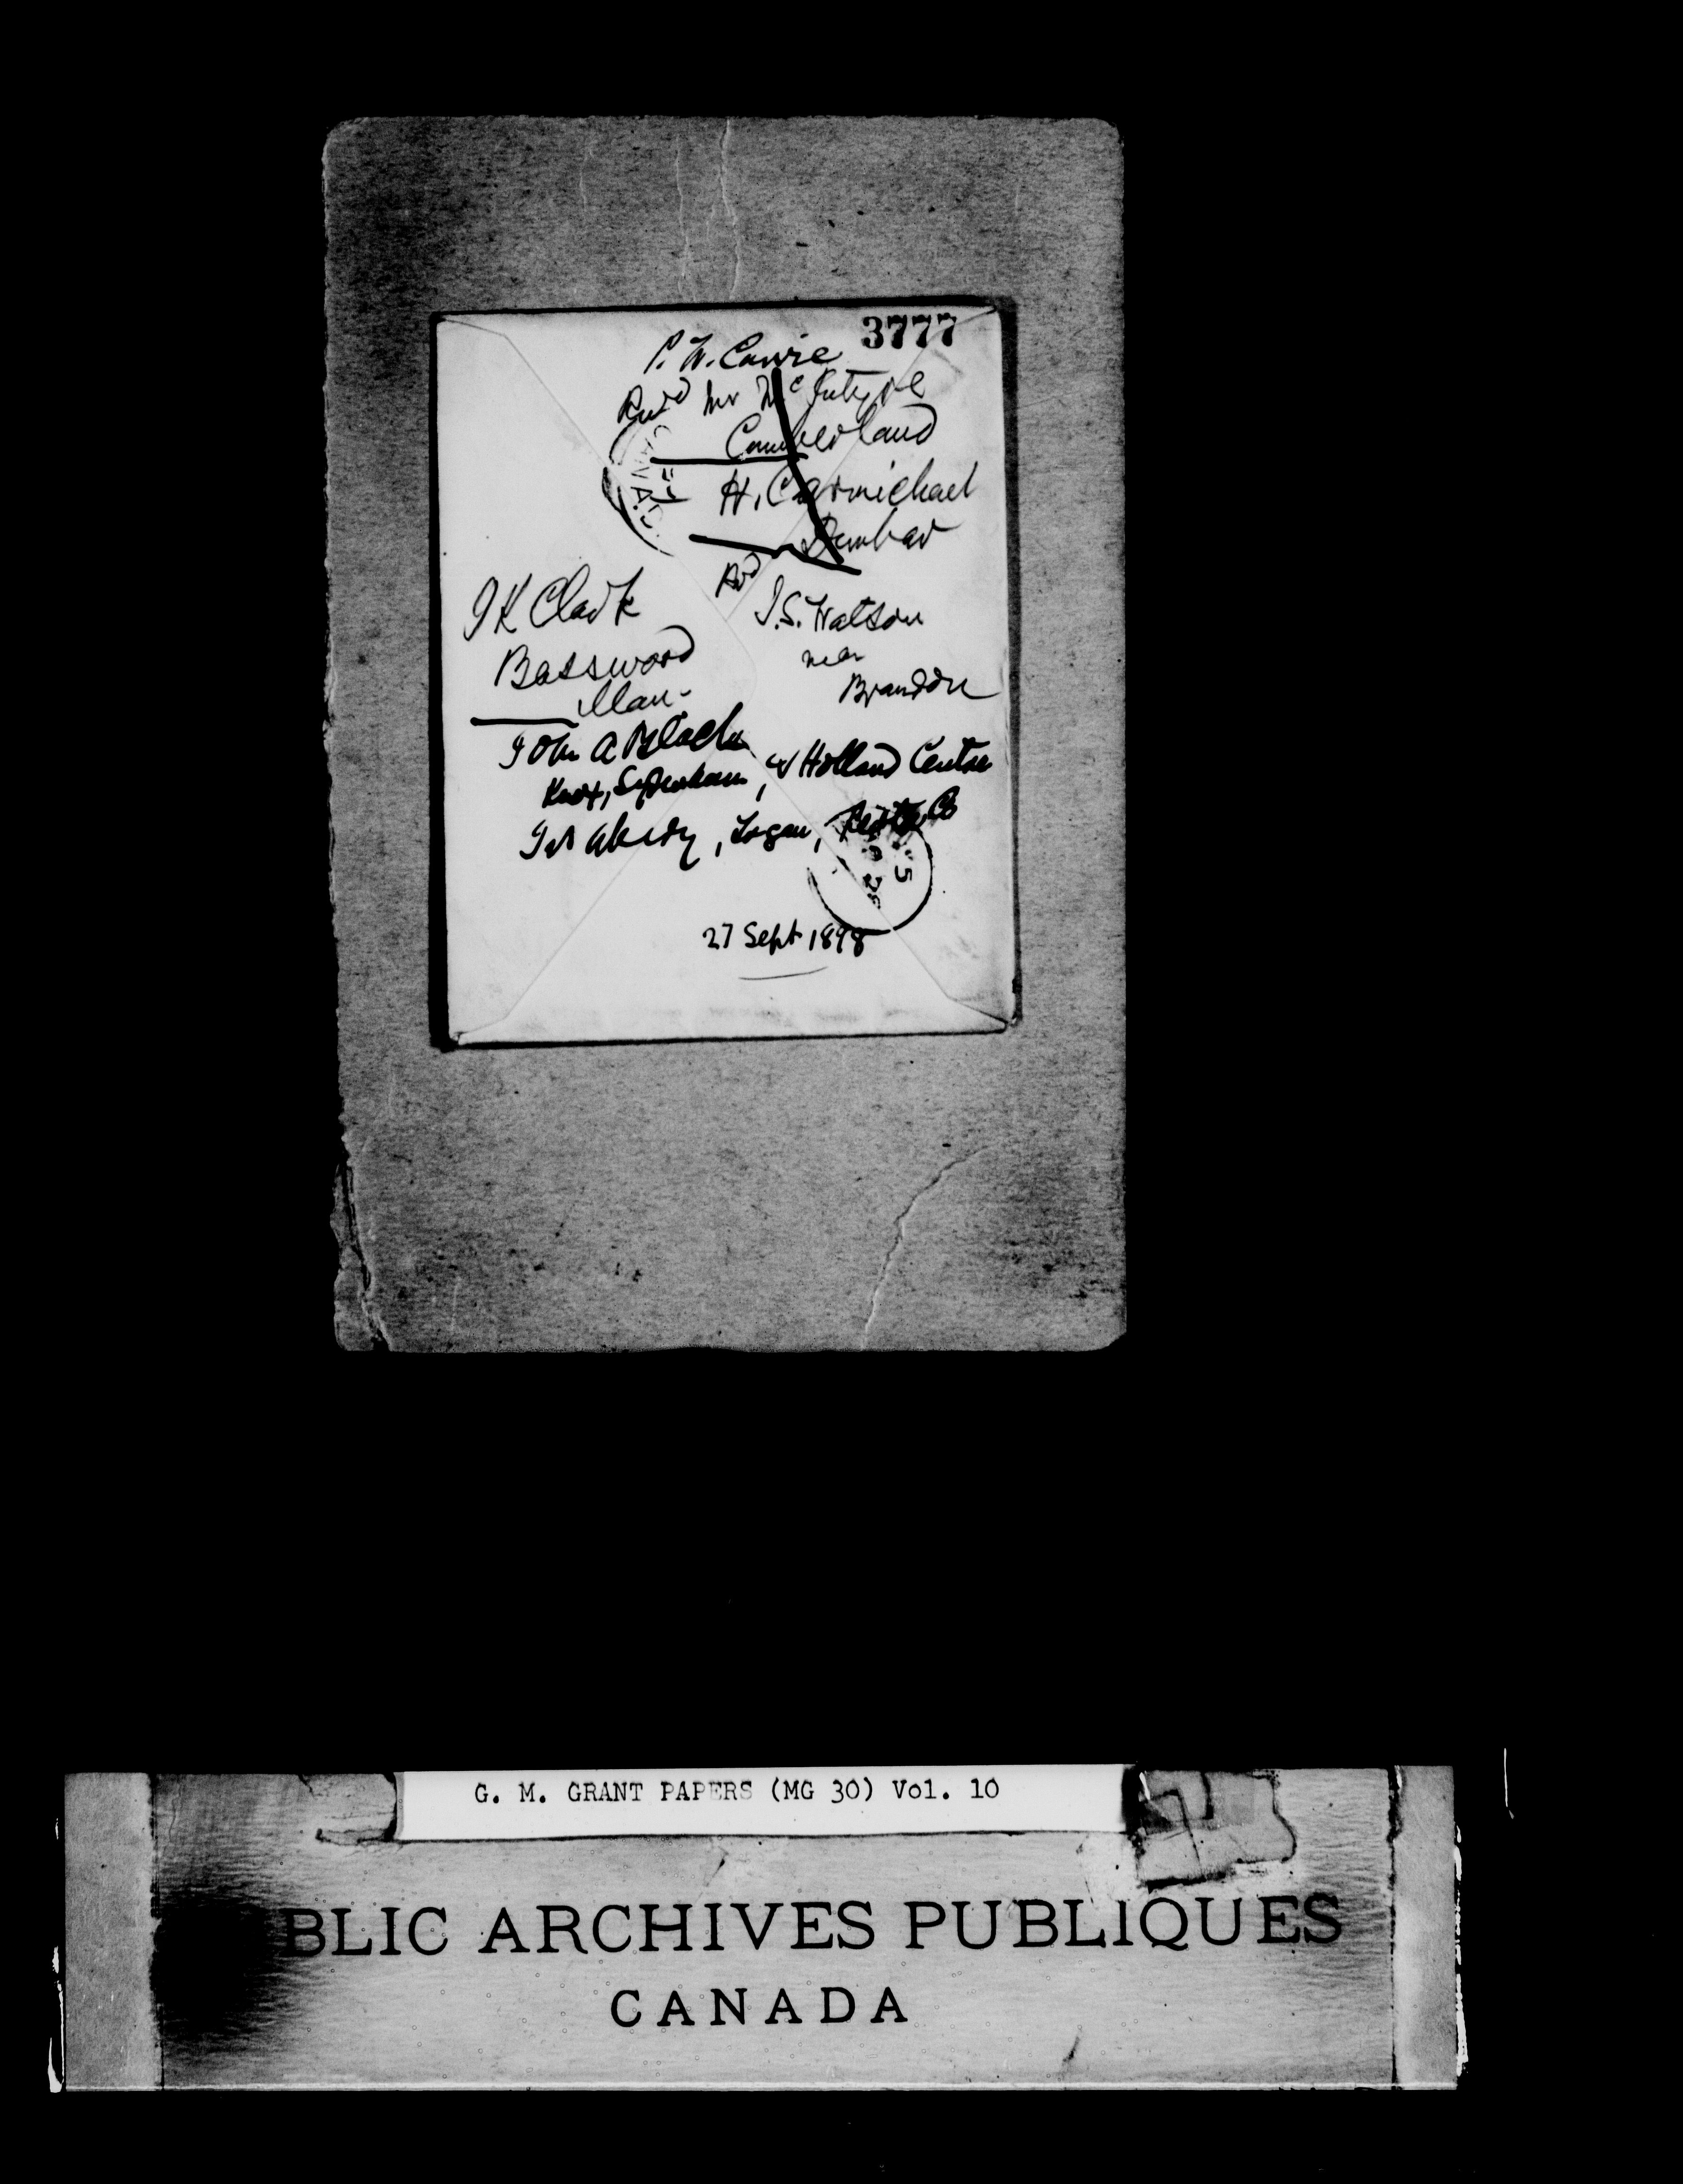 3777
P. W. Currie
Rev'd Mr McIntyre
Cumberland
H. Carmichael
Dunbar
J K Clark
Basswood
Man.
Rev'd
J. S. Watson
near
Brandon
John A Black
Knox, Sydenham, & Holland Centre
Logan, Co
27 Sept 1898
G. M. GRANT PAPERS (MG 30) Vol. 10
BLIC ARCHIVES PUBLIQUES
CANADA